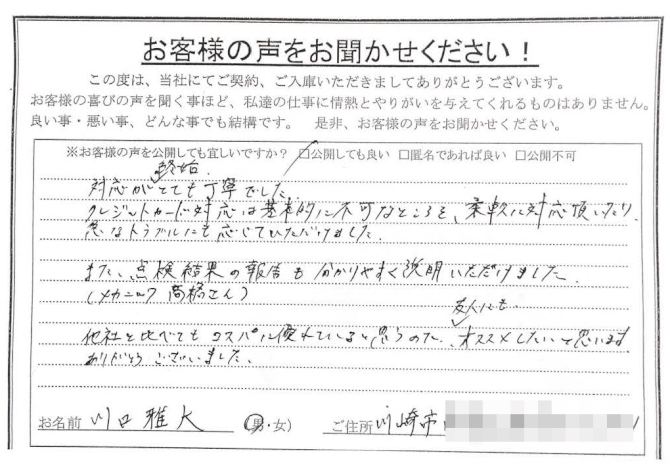 お客様の声をお聞かせください！
この度は、当社にてご契約、ご入庫いただきましてありがとうございます。
お客様の喜びの声を聞く事ほど、私達の仕事に情熱とやりがいを与えてくれるものはありません。
良い事・悪い事、どんな事でも結構です。　是非、お客様の声をお聞かせください。
※お客様の声を公開しても宜しいですか？ □公開しても良い □匿名であれば良い □公開不可
終始
対応がとても丁寧でした。
クレジットカード対応は基本的に不可なところを、柔軟に対応頂いたり
急なトラブルにも応じていただけました。
また、点検結果の報告も分かりやすく説明いただけました。
(メカニック 高橋さん)
友人にも
他社と比べてもコスパに優れていると思うので、オススメしたいと思います
ありがとうございました。
お名前 川口 雅大 (男・女) ご住所 川崎市